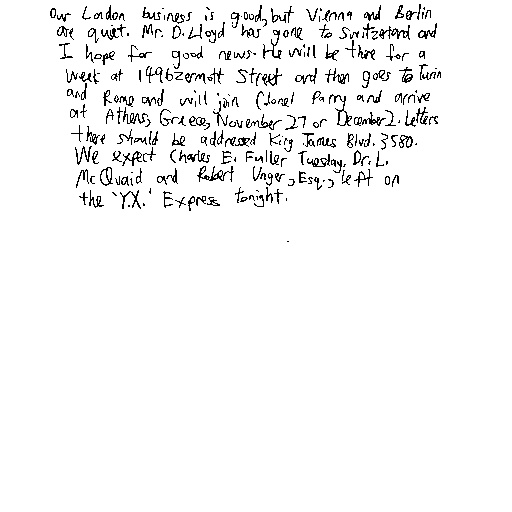 Our London business is good, but Vienna and Berlin
are quiet. Mr. D. Lloyd has gone to Switzerland and
I hope for good news. He will be there for a
week at 1496 Zermott Street and then goes to Turin
and Rome and will join Colonel Parry and arrive
at Athens, Greece, November 27 or December 2. Letters
there should be addressed King James Blvd. 3580.
We expect Charles E. Fuller Tuesday. Dr. L.
McQuaid and Robert Unger, Esq., left on
the 'Y.X.' Express tonight.